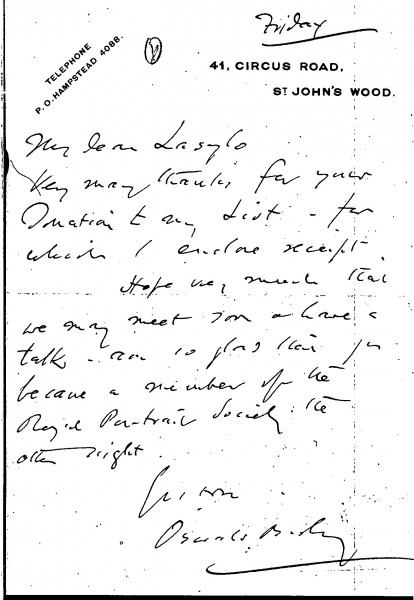 Friday
TELEPHONE
P.O. HAMPSTEAD 4088.
41, CIRCUS ROAD,
ST JOHN'S WOOD.
My dear Laszlo
Very many thanks for your
Donation to my List - for
which I enclose receipt.
Hope very much that
we may meet soon & have a
talk - am so glad that you
became a member of the
Royal Portrait Society the
other night.
Oswald Birley